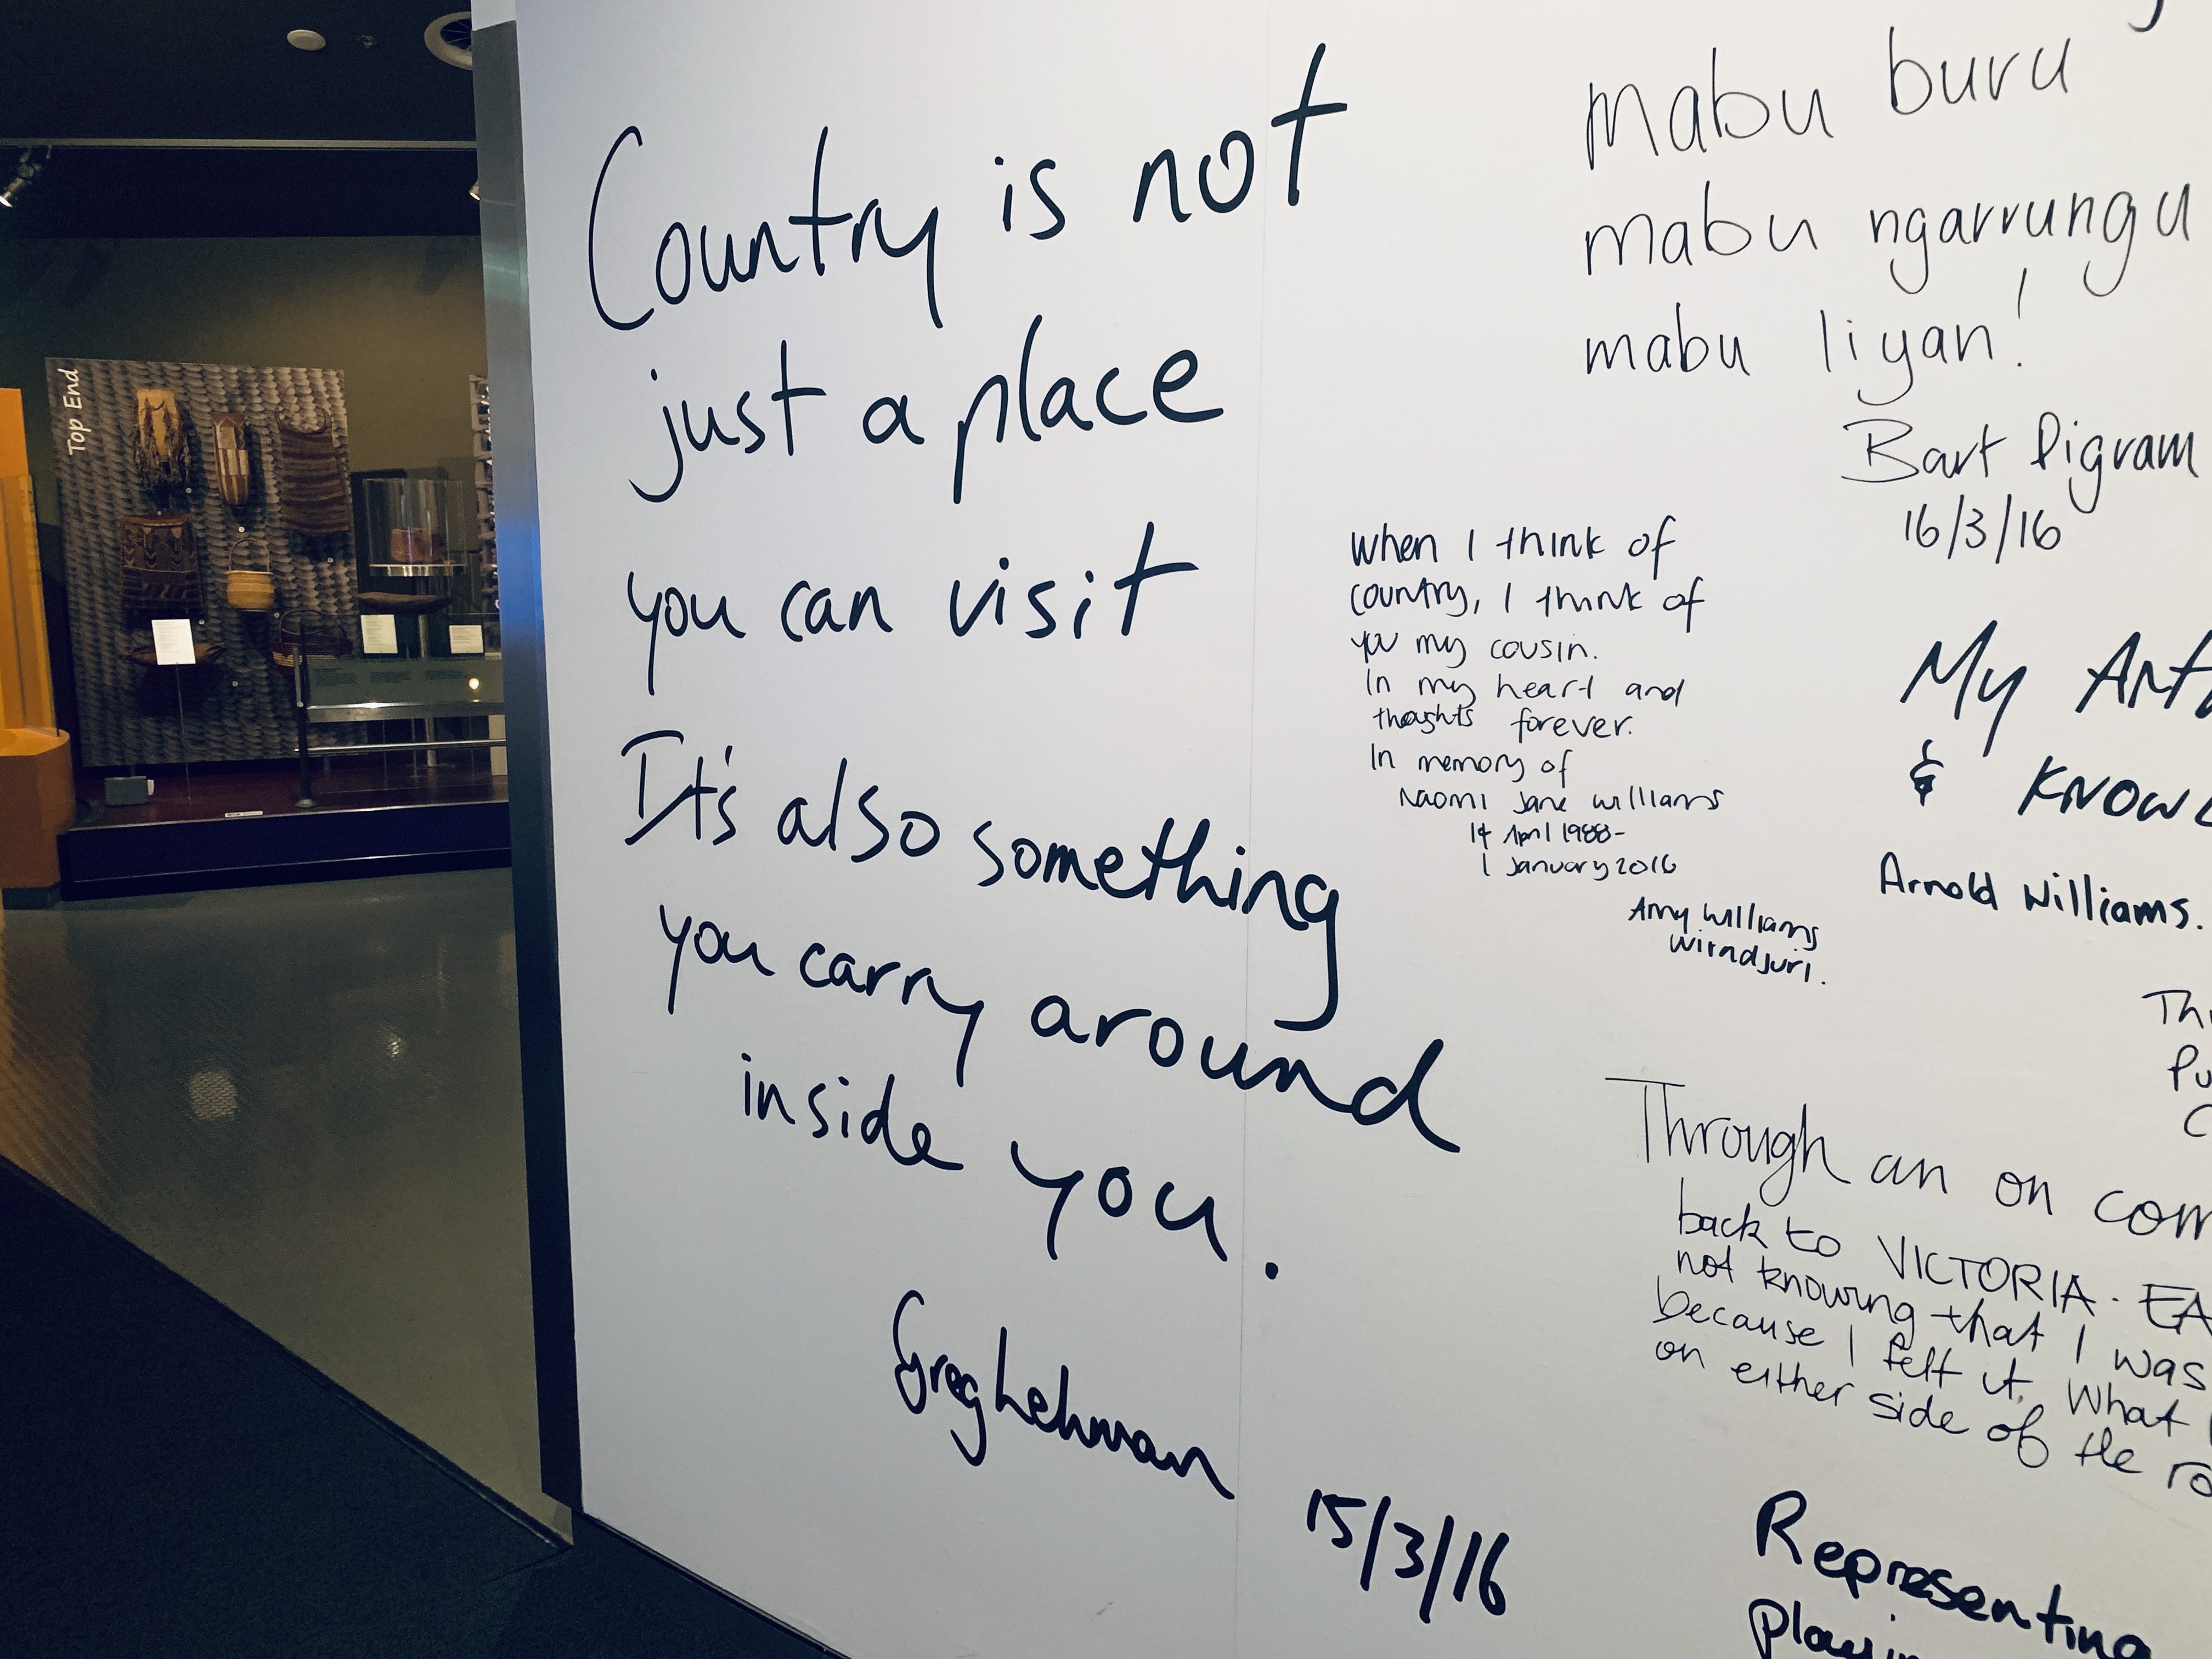 Top End
Country is not
just a place
you can visit
It's also something
you carry around
inside you.
Greg Lehman
15/3/16
mabu buru
mabu ngarrungu
mabu liyan!
Bart Pigram
16/3/16
when I think of
country, I think of
you my cousin.
In my heart and
thoughts forever.
In memory of
Naomi Jane Williams
14 April 1988-
1 January 2016
Amy Williams
Wiradjuri.
My
&
Arnold Williams.
Through an on
back to VICTORIA.
not knowing that I was
because I felt it. What
on either side of the
Representing